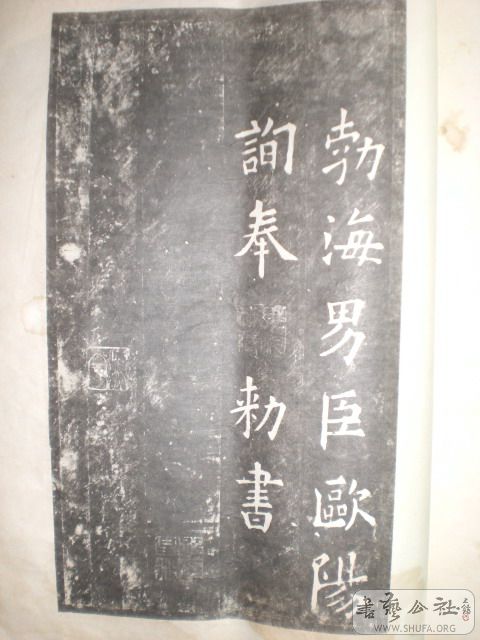 勃海男臣歐陽
詢奉 勅書
書藝公社
WWW.SHUFA.ORG